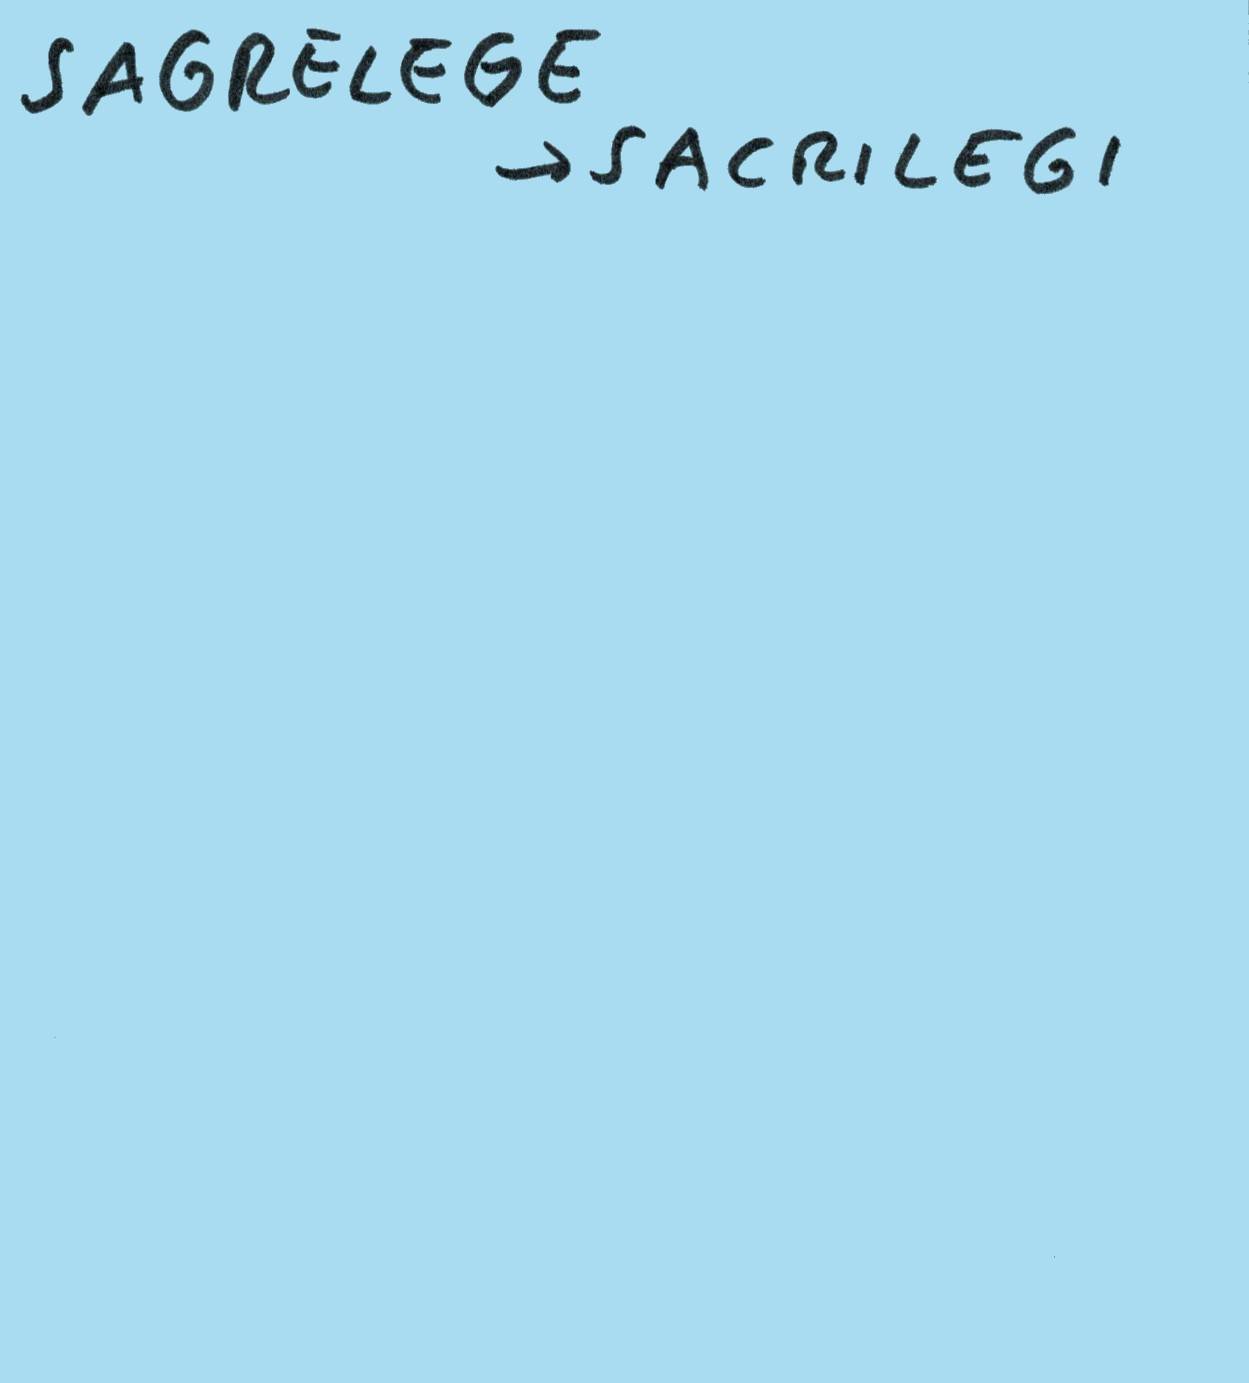 SAGRELEGE
→SACRILEGI